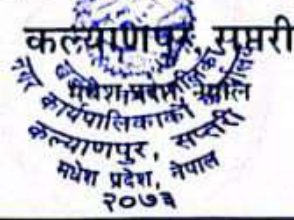 कल्याणपुर, सप्तरी
मधेश प्रदेश, नेपाल
नगर कार्यपालिकाको
कल्याणपुर, सप्तरी
मधेश प्रदेश, नेपाल
२०७३